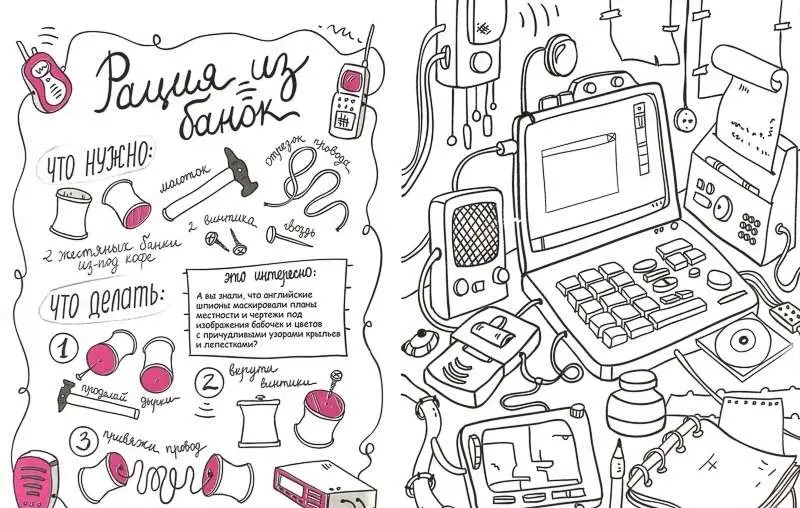 Рация из
банок
ЧТО НУЖНО:
молоток
отрезок провода
2 винтика
гвоздь
2 жестяных банки
из-под кофе
ЧТО ДЕЛАТЬ:
ЭТО ИНТЕРЕСНО:
А вы знали, что английские
шпионы маскировали планы
местности и чертежи под
изображения бабочек и цветов
с причудливыми узорами крыльев
и лепестками?
1
проделай дырки
2
вкрути
винтики
3
привяжи провод